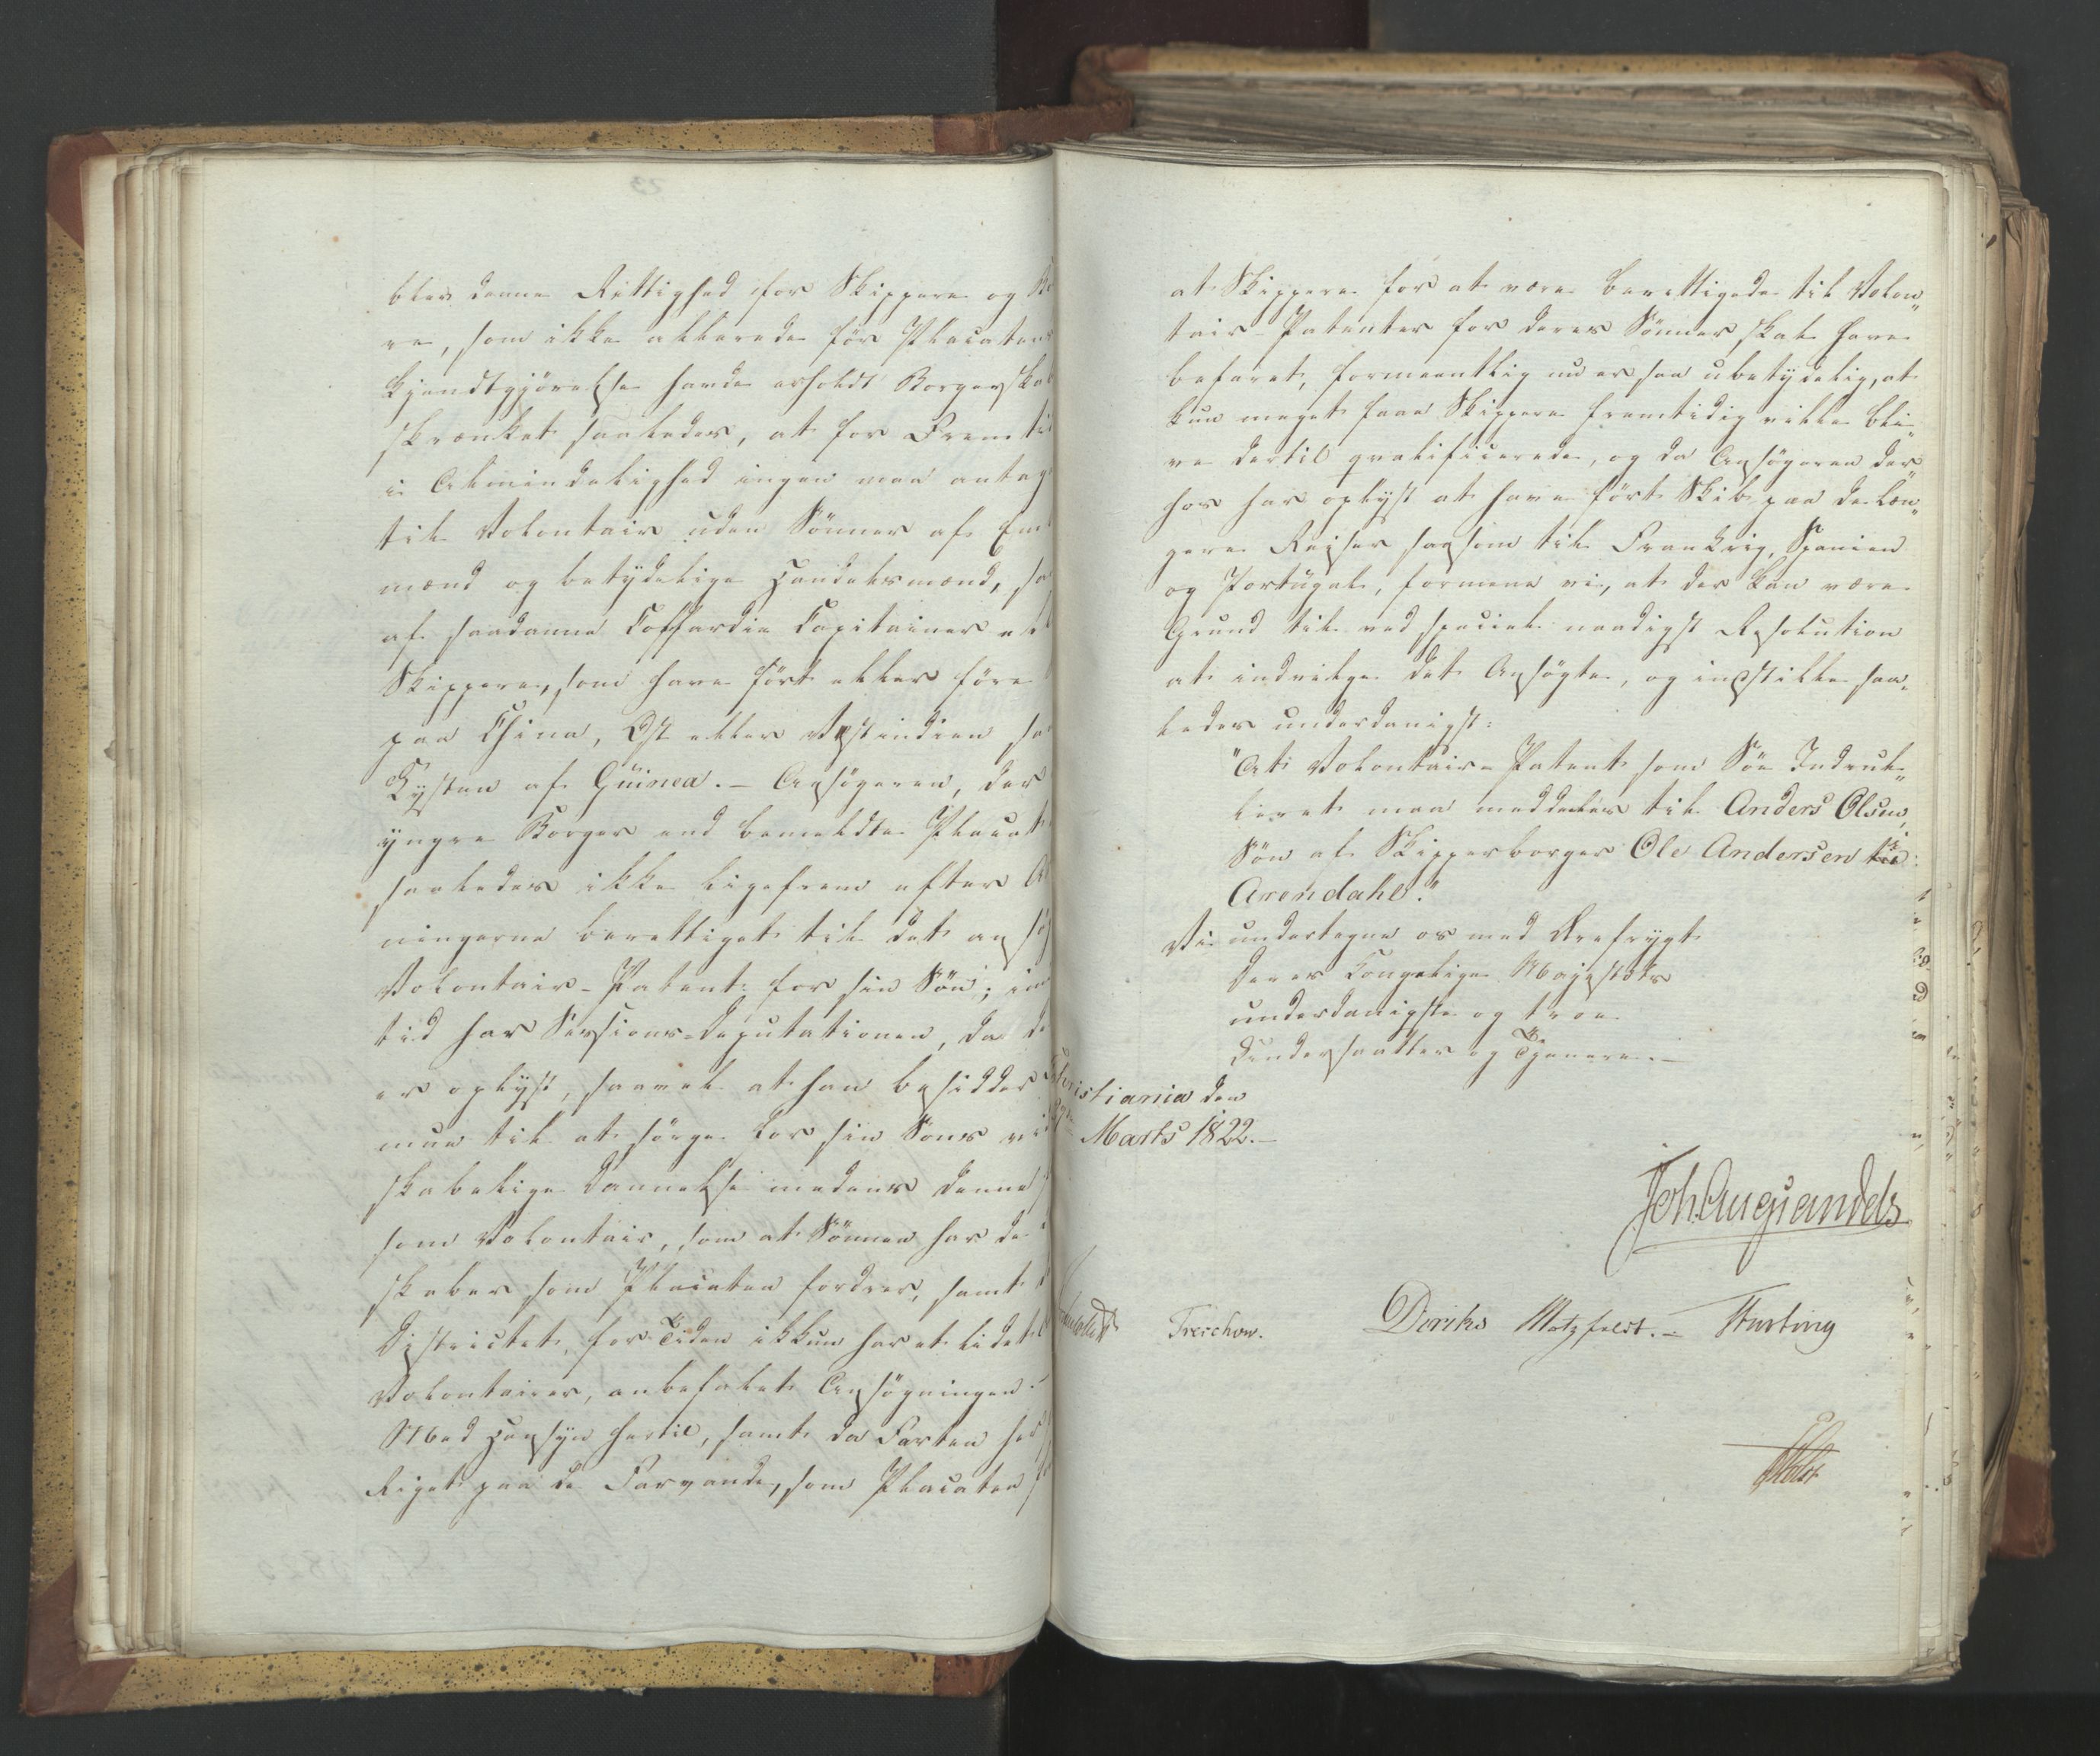 blev denne Rettighed for Skippere og
re, som ikke allerede før Placatens
Kjendtgjørelse havde erholdt Borgerskab
skrænket saaledes, at for Fremti
i Almindelighed ingen maa antag
til Volontair uden Sönner af Em
mænd og betydelige Handelsmænd, sa
af saadanne Coffardie Capitainer ell
Skippere, som have ført eller føre
paa China, Ost eller Vestindien sa
Kysten af Guinea. – Ansøgeren, der
yngre Borger end bemeldte Placat
saaledes ikke ligefrem efter A
ningerne berettiget til det ansøg
Volontair-Patent for sin Søn; im
tid har Sessions-Deputationen, da de
er oplyst, saavel at han besidder
mue til at sørge for sin Søns vi
skabelige Dannelse medens denne
som Volontair, som at Sønnen har de
skaber som Placaten fordrer, samt
Districtet for Tiden ikkun har et lidet
Volontairer, anbefalet Ansøgningen.
Med Hensyn hertil, samt da Farten he
Riget paa de Farvande, som Placaten
at Skippere for at være berettigede til Volon„
tair-Patenter for deres Sønner skal have
befaret, formeentlig nu er saa ubetydelig, at
kun meget faae Skippere fremtidig ville bli„
ve dertil qvalificerede, og da Ansøgeren der„
hos har oplyst at have ført Skib paa de læn„
gere Reiser saasom til Frankrig, Spanien
og Portugal, formene vi, at der kan være
Grund til ved special naadigst Resolution
at indvilge det Ansøgte, og indstille saa„
ledes underdanigst:
"At Volontair-Patent som Søe Indrul„
leret maa meddeles til Anders Olsen,
Søn af Skipperborger Ole Andersen i
Arendahl."
Vi undertegne os med Ærefrygt
Deres Kongelige Majestæts
underdanigste og troe
Undersaatter og Tjenere. –
Christiania den
Marts 1822. –
Joh. Aug. Sandels
Treschow. Diriks Motzfeldt. – Fasting
Holst